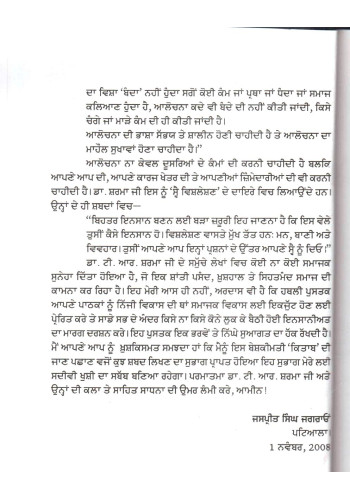 ਦਾ ਵਿਸ਼ਾ ‘ਬੰਦਾ’ ਨਹੀਂ ਹੁੰਦਾ ਸਗੋਂ ਕੋਈ ਕੰਮ ਜਾਂ ਪ੍ਰਥਾ ਜਾਂ ਧੰਦਾ ਜਾਂ ਸਮਾਜ
ਕਲਿਆਣ ਹੁੰਦਾ ਹੈ, ਆਲੋਚਨਾ ਕਦੇ ਵੀ ਬੰਦੇ ਦੀ ਨਹੀਂ ਕੀਤੀ ਜਾਂਦੀ, ਕਿਸੇ
ਚੰਗੇ ਜਾਂ ਮਾੜੇ ਕੰਮ ਦੀ ਹੀ ਕੀਤੀ ਜਾਂਦੀ ਹੈ।
ਆਲੋਚਨਾ ਦੀ ਭਾਸ਼ਾ ਸੱਭਯ ਤੇ ਸ਼ਾਲੀਨ ਹੋਣੀ ਚਾਹੀਦੀ ਹੈ ਤੇ ਆਲੋਚਨਾ ਦਾ
ਮਾਹੌਲ ਸੁਖਾਵਾਂ ਹੋਣਾ ਚਾਹੀਦਾ ਹੈ।”
ਆਲੋਚਨਾ ਨਾ ਕੇਵਲ ਦੂਸਰਿਆਂ ਦੇ ਕੰਮਾਂ ਦੀ ਕਰਨੀ ਚਾਹੀਦੀ ਹੈ ਬਲਕਿ
ਆਪਣੇ ਆਪ ਦੀ, ਆਪਣੇ ਕਾਰਜ ਖੇਤਰ ਦੀ ਤੇ ਆਪਣੀਆਂ ਜ਼ਿੰਮੇਦਾਰੀਆਂ ਦੀ ਵੀ ਕਰਨੀ
ਚਾਹੀਦੀ ਹੈ। ਡਾ. ਸ਼ਰਮਾ ਜੀ ਇਸ ਨੂੰ ‘ਸ੍ਵੈ ਵਿਸ਼ਲੇਸ਼ਣ’ ਦੇ ਦਾਇਰੇ ਵਿਚ ਲਿਆਉਂਦੇ ਹਨ।
ਉਨ੍ਹਾਂ ਦੇ ਹੀ ਸ਼ਬਦਾਂ ਵਿਚ—
“ਬਿਹਤਰ ਇਨਸਾਨ ਬਣਨ ਲਈ ਬੜਾ ਜ਼ਰੂਰੀ ਇਹ ਜਾਣਨਾ ਹੈ ਕਿ ਇਸ ਵੇਲੇ
ਤੁਸੀਂ ਕੈਸੇ ਇਨਸਾਨ ਹੋ। ਵਿਸ਼ਲੇਸ਼ਣ ਵਾਸਤੇ ਮੁੱਖ ਤੱਤ ਹਨ: ਮਨ, ਬਾਣੀ ਅਤੇ
ਵਿਵਹਾਰ। ਤੁਸੀਂ ਆਪਣੇ ਆਪ ਇਨ੍ਹਾਂ ਪ੍ਰਸ਼ਨਾਂ ਦੇ ਉੱਤਰ ਆਪਣੇ ਸ੍ਵੈ ਨੂੰ ਦਿਓ।”
ਡਾ. ਟੀ. ਆਰ. ਸ਼ਰਮਾ ਜੀ ਦੇ ਸਮੁੱਚੇ ਲੇਖਾਂ ਵਿਚ ਕੋਈ ਨਾ ਕੋਈ ਸਮਾਜਕ
ਸੁਨੇਹਾ ਦਿੱਤਾ ਹੋਇਆ ਹੈ, ਜੋ ਇਕ ਸ਼ਾਂਤੀ ਪਸੰਦ, ਖ਼ੁਸ਼ਹਾਲ ਤੇ ਸਿਹਤਮੰਦ ਸਮਾਜ ਦੀ
ਕਾਮਨਾ ਕਰ ਰਿਹਾ ਹੈ। ਇਹ ਮੇਰੀ ਆਸ ਹੀ ਨਹੀਂ, ਅਰਦਾਸ ਵੀ ਹੈ ਕਿ ਹਥਲੀ ਪੁਸਤਕ
ਆਪਣੇ ਪਾਠਕਾਂ ਨੂੰ ਨਿੱਜੀ ਵਿਕਾਸ ਦੀ ਥਾਂ ਸਮਾਜਕ ਵਿਕਾਸ ਲਈ ਇਕਜੁੱਟ ਹੋਣ ਲਈ
ਪ੍ਰੇਰਿਤ ਕਰੇ ਤੇ ਸਾਡੇ ਸਭ ਦੇ ਅੰਦਰ ਕਿਸੇ ਨਾ ਕਿਸੇ ਕੋਨੇ ਲੁਕ ਕੇ ਬੈਠੀ ਹੋਈ ਇਨਸਾਨੀਅਤ
ਦਾ ਮਾਰਗ ਦਰਸ਼ਨ ਕਰੇ। ਇਹ ਪੁਸਤਕ ਇਕ ਭਰਵੇਂ ਤੇ ਨਿੱਘੇ ਸੁਆਗਤ ਦਾ ਹੱਕ ਰੱਖਦੀ ਹੈ।
ਮੈਂ ਆਪਣੇ ਆਪ ਨੂੰ ਖ਼ੁਸ਼ਕਿਸਮਤ ਸਮਝਦਾ ਹਾਂ ਕਿ ਮੈਨੂੰ ਇਸ ਬੇਸ਼ਕੀਮਤੀ ‘ਕਿਤਾਬ’ ਦੀ
ਜਾਣ ਪਛਾਣ ਵਜੋਂ ਕੁਝ ਸ਼ਬਦ ਲਿਖਣ ਦਾ ਸੁਭਾਗ ਪ੍ਰਾਪਤ ਹੋਇਆ ਇਹ ਸੁਭਾਗ ਮੇਰੇ ਲਈ
ਸਦੀਵੀ ਖੁਸ਼ੀ ਦਾ ਸਬੱਬ ਬਣਿਆ ਰਹੇਗਾ। ਪਰਮਾਤਮਾ ਡਾ. ਟੀ. ਆਰ. ਸ਼ਰਮਾ ਜੀ ਅਤੇ
ਉਨ੍ਹਾਂ ਦੀ ਕਲਾ ਤੇ ਸਾਹਿਤ ਸਾਧਨਾ ਦੀ ਉਮਰ ਲੰਮੀ ਕਰੇ, ਆਮੀਨ!
ਜਸਪ੍ਰੀਤ ਸਿੰਘ ਜਗਰਾਓਂ
ਪਟਿਆਲਾ।
1 ਨਵੰਬਰ, 2008